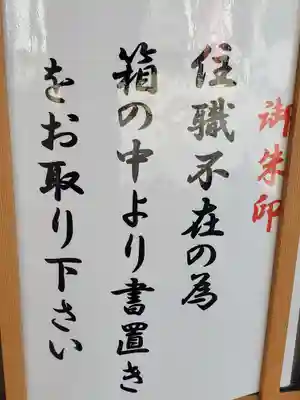 御朱印
住職不在の為
箱の中より書置き
をお取り下さい